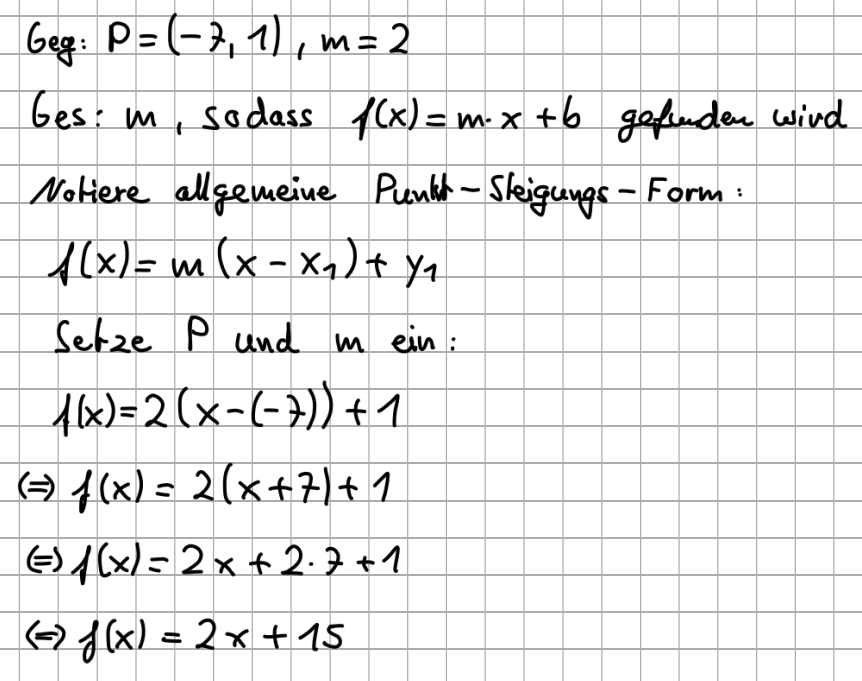 Geg: P = (-7, 1), m = 2
Ges: m, sodass f(x) = m · x + b gefunden wird
Notiere allgemeine Punkt-Steigungs-Form:
f(x) = m (x - x₁) + y₁
Setze P und m ein:
f(x) = 2 (x - (-7)) + 1
⇔ f(x) = 2(x + 7) + 1
⇔ f(x) = 2x + 2 · 7 + 1
⇔ f(x) = 2x + 15